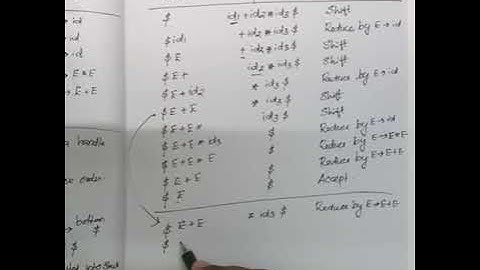 → id
→ id
→ E*E
→ E+E
a handle
order
bottom
$
$
$ id1 + id2 * id3 $ Shift
$ id1 + id2 * id3 $ Reduce by E→id
$ E + id2 * id3 $ Shift
$ E + id2 * id3 $ Shift
$ E + id2 * id3 $ Reduce by E→id
$ E + E * id3 $ Shift
$ E + E * id3 $ Shift
$ E + E * id3 $ Reduce by E→id
$ E + E * E $ Reduce by E→E*E
$ E + E $ Reduce by E→E+E
$ E $ Accept
$ E + E * id3 $ Reduce by E→E+E
$